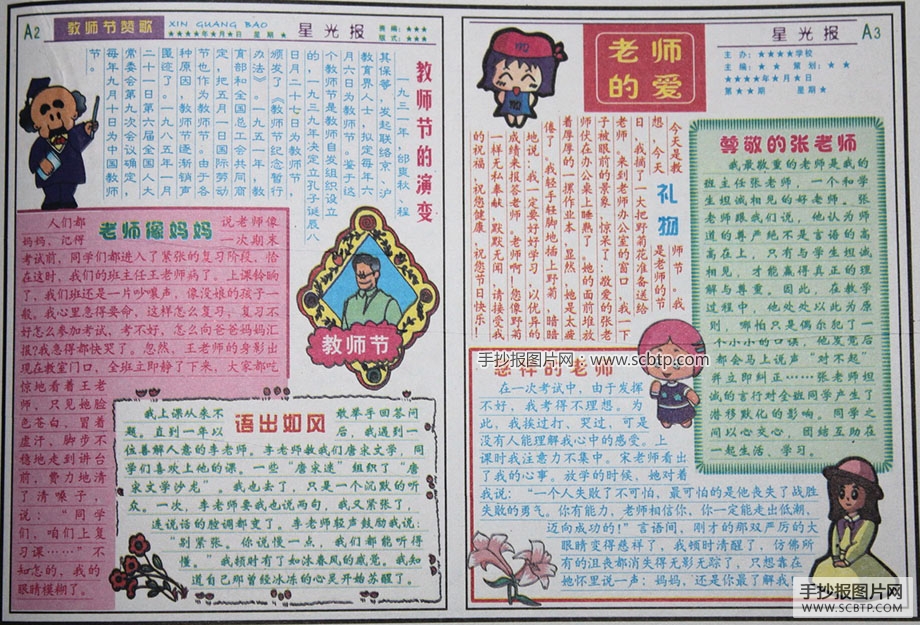 A2
教师节赞歌
XIN GUANG BAO
★★★★年★月★日 星期★
星光报
责编：★★★
版式：★★★
教师节的演变
一九三一年，邰爽秋、程
其保等，发起联络京、沪
教育界人士，拟定每年六
月六日为教师节。鉴于这
个教师节是教师自发组织设立
的，一九三九年决定立孔子诞辰八
月二十七日为教师节，
颁发了《教师节纪念暂行
办法》。一九五一年，教
育部和全国总工会共同商
定，把五月一日国际劳动
节也作为教师节。由于各
种原因，教师节逐渐销声
匿迹了。一九八五年一月
二十一日第六届全国人大
常委会第九次会议确定，
每年九月十日为中国教师
节。
老师像妈妈
人们都说老师像
妈妈，记得一次期末
考试前，同学们都进入了紧张的复习阶段，恰
在这时，我们的班主任王老师病了。上课铃响
了，我们班还是一片吵嚷声，像没娘的孩子一
般。我心里急得要命，这样怎么复习，复习不
好怎么参加考试，考不好，怎么向爸爸妈妈汇
报?我急得都快哭了。忽然，王老师的身影出
现在教室门口，全班立即静了下来，大家都吃
惊地看着王老
师，只见她脸
色苍白，冒着
虚汗，脚步不
稳地走到讲台
前，费力地清
了清嗓子，
说：“同学
们，咱们上复
习课……”不
知怎的，我的
眼睛模糊了。
教师节
语出如风
我上课从来不敢举手回答问
题。直到一年以后，我遇到一
位善解人意的李老师。李老师教我们唐宋文学，同
学们喜欢上他的课。一些“唐宋迷”组织了“唐
宋文学沙龙”。我也去了，只是一个沉默的听
众。一次，李老师要我也说两句，我又紧张了，
连说话的腔调都变了。李老师轻声鼓励我说：
“别紧张。你说慢一点，我们都能听得
懂。”我顿时有了如沐春风的感觉。我知
道自己那曾经冰冻的心灵开始苏醒了。
老师的爱
星光报
A3
主办：★★★★学校
主编：★★ 策划：★★
★★★★年★月★日
第★★期 星期★
礼物
今天是教师节。我
想，今天是老师的节
日，我摘了一大把野菊花准备送给
老师。来到老师办公室的窗口，我一下
子被眼前的景象惊呆了，敬爱的张老
师伏在办公桌上睡熟了。她的面前堆放
着厚厚的一摞作业本，显然，她是太疲
倦了。我轻手轻脚地插上野菊，暗暗
地说：我一定要好好学习，以优异的
成绩来报答老师。老师啊！您像野菊
一样无私奉献，默默无闻，请接受我
的祝福：祝您健康，祝您节日快乐！
尊敬的张老师
我最敬重的老师是我的
班主任张老师，一个和学
生坦诚相见的好老师。张
老师跟我们说，他认为师
道的尊严绝不是言语的高
高在上，只有与学生坦诚
相见，才能赢得真正的理
解与尊重。因此，在教学
过程中，他处处以此为原
则，哪怕只是偶尔犯了一
个小小的口误，他发觉后
都会马上说声“对不起”
并立即纠正……张老师坦
诚的言行对全班同学产生了
潜移默化的影响。同学之
间以心交心，团结互助在
一起生活、学习。
手抄报图片网：www.scbtp.com
慈祥的老师
在一次考试中，由于发挥
不好，我考得不理想。为
此，我挨过打、哭过，可是
没有人能理解我心中的感受。上
课时我注意力不集中。宋老师看出
了我的心事。放学的时候，她对着
我说：“一个人失败了不可怕，最可怕的是他丧失了战胜
失败的勇气。你有能力，老师相信你，你一定能走出低潮，
迈向成功的！”言语间，刚才的那双严厉的大
眼睛变得慈祥了，我顿时清醒了，仿佛所
有的沮丧都消失得无影无踪了，只想靠在
她怀里说一声：妈妈，还是你最了解我
手抄报图片网
WWW.SCBTP.COM